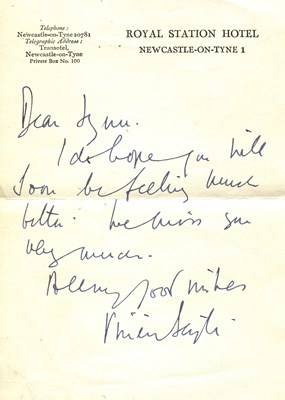 Telephone:
Newcastle-on-Tyne 20781
Telegraphic Address:
Transotel,
Newcastle-on-Tyne
Private Box No. 100
ROYAL STATION HOTEL
NEWCASTLE-ON-TYNE 1
Dear Lynn.
I do hope you will
soon be feeling much
better. We miss you
very much.
All my good wishes
Vivien Leigh